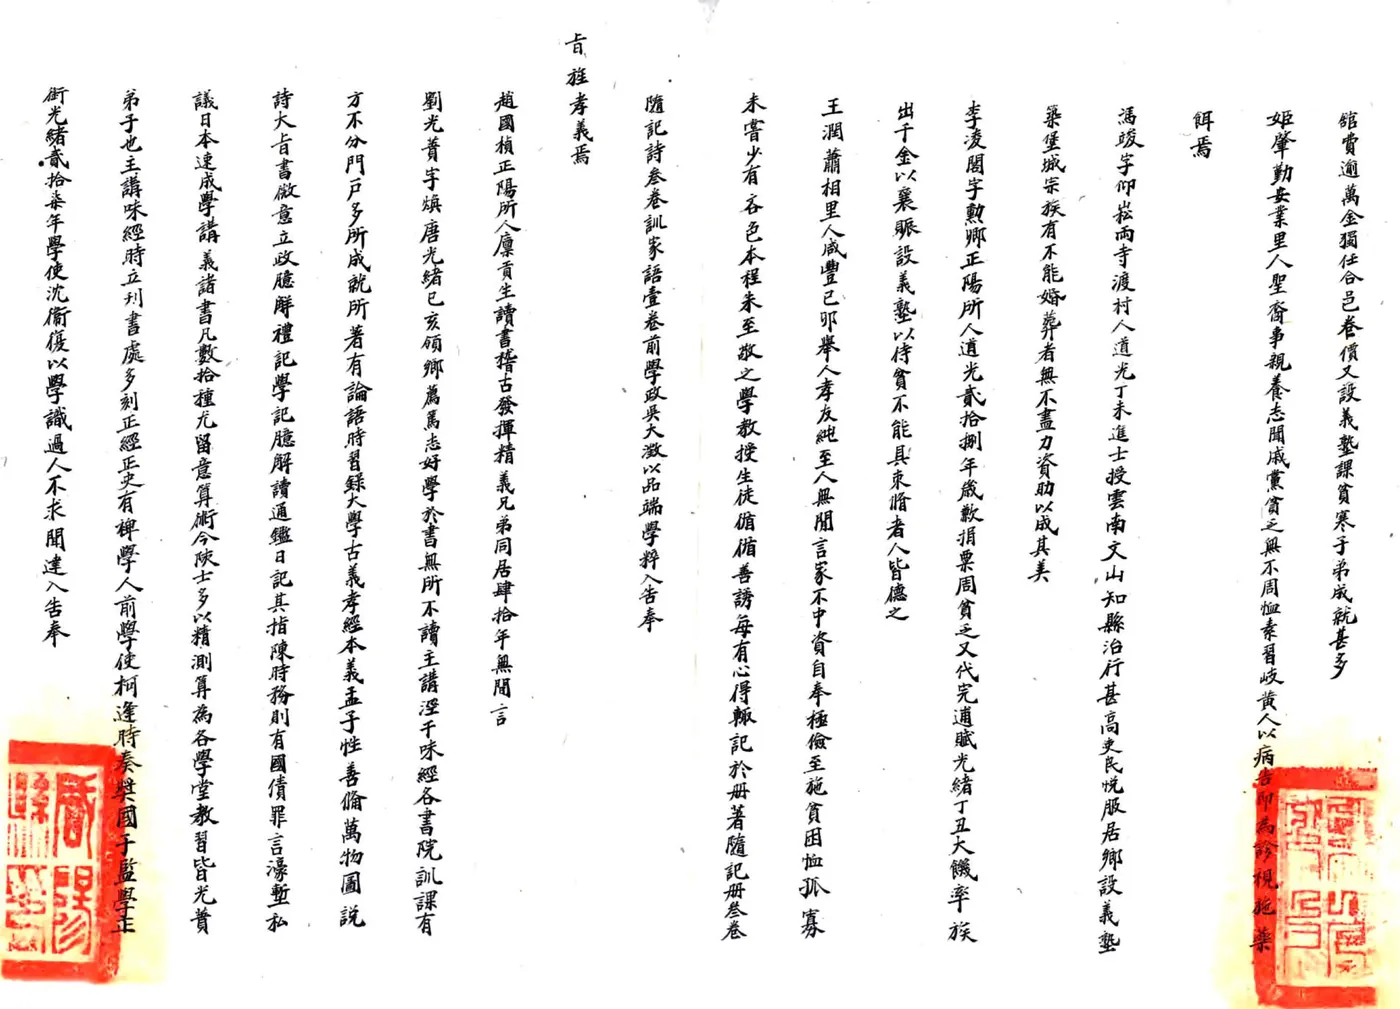 舘費逾萬金獨任合邑卷價又設義塾課貧寒子弟成就甚多
姬肇勤安業里人聖裔事親養志聞戚黨貧乏無不周恤素習岐黃人以病告即為診視施藥
餌焉
馮踆字仰崧兩寺渡村人道光丁未進士授雲南文山知縣治行甚高吏民悅服居鄉設義塾
築堡城宗族有不能婚葬者無不盡力資助以成其美
李凌閣字勲卿正陽所人道光貳拾捌年歲歉捐粟周貧乏又代完逋賦光緒丁丑大饑率族
出千金以襄賑設義塾以待貧不能具束脩者人皆德之
王潤蕭相里人咸豐己卯舉人孝友純至人無閒言家不中資自奉極儉至施貧困恤孤寡
未嘗少有吝色本程朱至敬之學教授生徒循循善誘每有心得輒記於册著隨記册叄卷
隨記詩叄卷訓家語壹卷前學政吳大澂以品端學粹入告奉
旨旌孝義焉
趙國楨正陽所人廪貢生讀書稽古發揮精義兄弟同居肆拾年無閒言
劉光蕡字煥唐光緒已亥領鄉薦篤志好學於書無所不讀主講涇干味經各書院訓課有
方不分門戶多所成就所著有論語時習錄大學古義孝經本義孟子性善俻萬物圖說
詩大旨書微意立政臆解禮記學記臆解讀通鑑日記其指陳時務則有國債罪言濠塹私
議日本速成學講義諸書凡數拾種尤留意算術今陝士多以精測算為各學堂教習皆光蕡
弟子也主講味經時立刊書處多刻正經正史有裨學人前學使柯逢時奏奬國子監學正
銜光緒貳拾柒年學使沈衞復以學識過人不求聞達入告奉